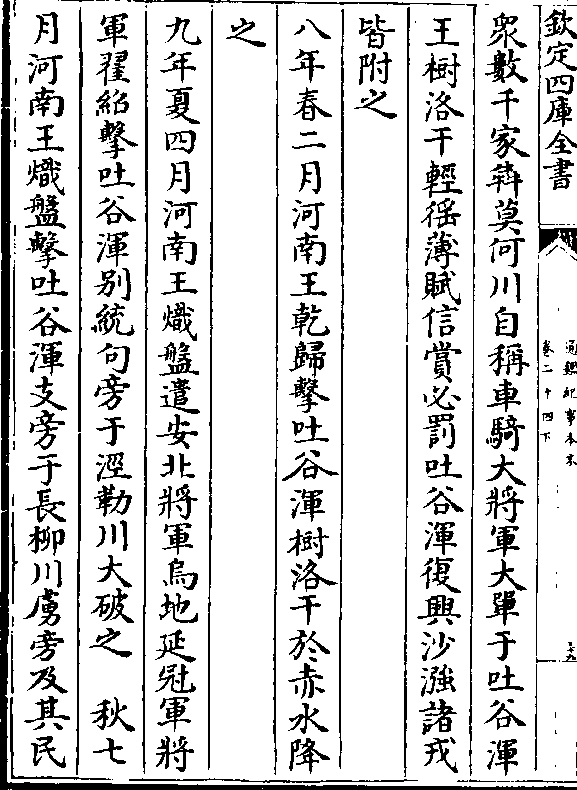 欽定四庫全書
通鑑紀事本末
卷二十四下
衆數千家犇莫何川自稱車騎大將軍大單于吐谷渾
王樹洛干輕徭薄賦信賞必罰吐谷渾復興沙漒諸戎
皆附之
八年春二月河南王乾歸擊吐谷渾樹洛干於赤水降
之
九年夏四月河南王熾盤遣安北將軍烏地延冠軍將
軍翟紹擊吐谷渾别統句旁于涇勒川大破之　秋七
月河南王熾盤擊吐谷渾支旁于長柳川虜旁及其民